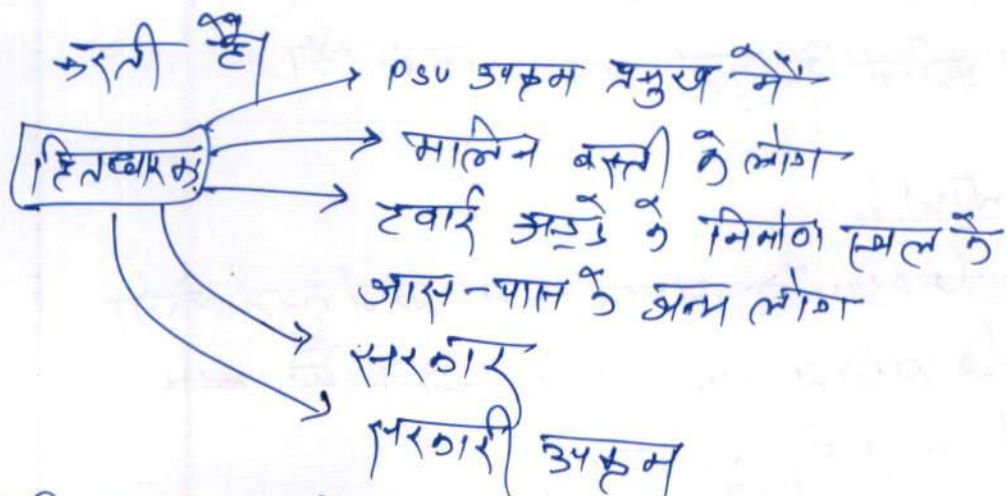 करती है
PSU उपक्रम प्रमुख में
हितधारक
मलिन बस्ती के लोग
हवाई अड्डे के निर्माण स्थल के
आस-पास के अन्य लोग
सरकार
सरकारी उपक्रम